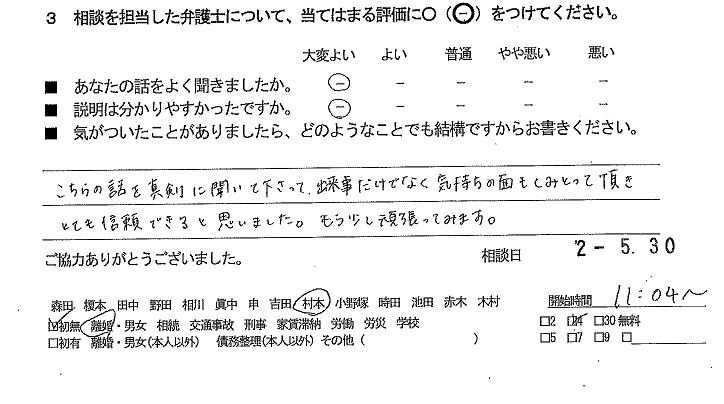 3 相談を担当した弁護士について、当てはまる評価に〇(⊖)をつけてください。
大変よい よい 普通 やや悪い 悪い
■ あなたの話をよく聞きましたか。 ⊖ － － － －
■ 説明は分かりやすかったですか。 ⊖ － － － －
■ 気がついたことがありましたら、どのようなことでも結構ですからお書きください。
こちらの話を真剣に聞いて下さって、出来事だけでなく気持ちの面もしみとって頂き
とても信頼できると思いました。もう少し頑張ってみます。
ご協力ありがとうございました。 相談日 2-5.30
森田 榎本 田中 野田 相川 眞中 申 吉田 村本 小野塚 時田 池田 赤木 木村 開始時間 11:04〜
☑初無 離婚・男女 相続 交通事故 刑事 家賃滞納 労働 労災 学校 □2 ☑24 □30 無料
□初有 離婚・男女(本人以外) 債務整理(本人以外) その他( ) □5 □7 □9 □